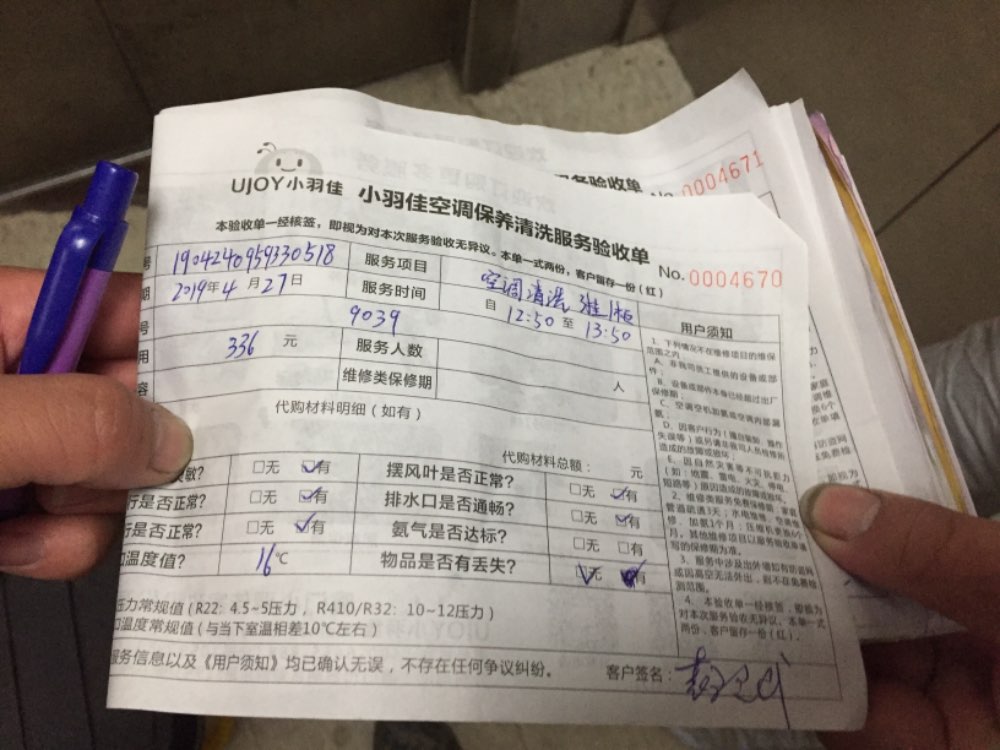 务验收单 No. 0004671
UJOY小羽佳 小羽佳空调保养清洗服务验收单
本验收单一经核签，即视为对本次服务验收无异议。本单一式两份，客户留存一份（红） No. 0004670
号 1904240959330518 服务项目 空调清洗 挂1柜1
期 2019年4月27日 服务时间 自 12:50 至 13:50
号 9039
用 336 元 服务人数 人
容 维修类保修期
代购材料明细（如有）
代购材料总额： 元
敏? □无 ☑有 摆风叶是否正常? □无 ☑有
行是否正常? □无 ☑有 排水口是否通畅? □无 ☑有
行是否正常? □无 ☑有 氨气是否达标? □无 □有
温度值? 16℃ 物品是否有丢失? ☑无 有
压力常规值（R22: 4.5~5压力，R410/R32: 10~12压力）
温度常规值（与当下室温相差10℃左右）
服务信息以及《用户须知》均已确认无误，不存在任何争议纠纷。
客户签名：
用户须知
1、下列情况不在维修项目的维保
范围之内
A、非我司员工提供的设备或部
件；
B、设备或部件本身已经超过出厂
保修期；
C、空调空机如氨或空调内部漏
氨；
D、因客户行为（擅自装卸、操作
失误等）或另请非我司人员检修所
造成的故障或损坏；
因自然灾害等不可抗力
（如：地震、雷电、火灾、停电、
短路等）原因造成的故障或损坏。
2、维修类服务免费保修期：家庭
管道疏通3天；水电维修、空调维
修、加氨1个月；压缩机更换6个
月。其他维修项目以服务验收单填
写的保修期为准。
3、服务中涉及出外墙如有防盗网
或因高空无法外出，则不在免费检
测范围。
4、本验收单一经核签，即视为
对本次服务验收无异议。本单一式
两份，客户留存一份（红）。